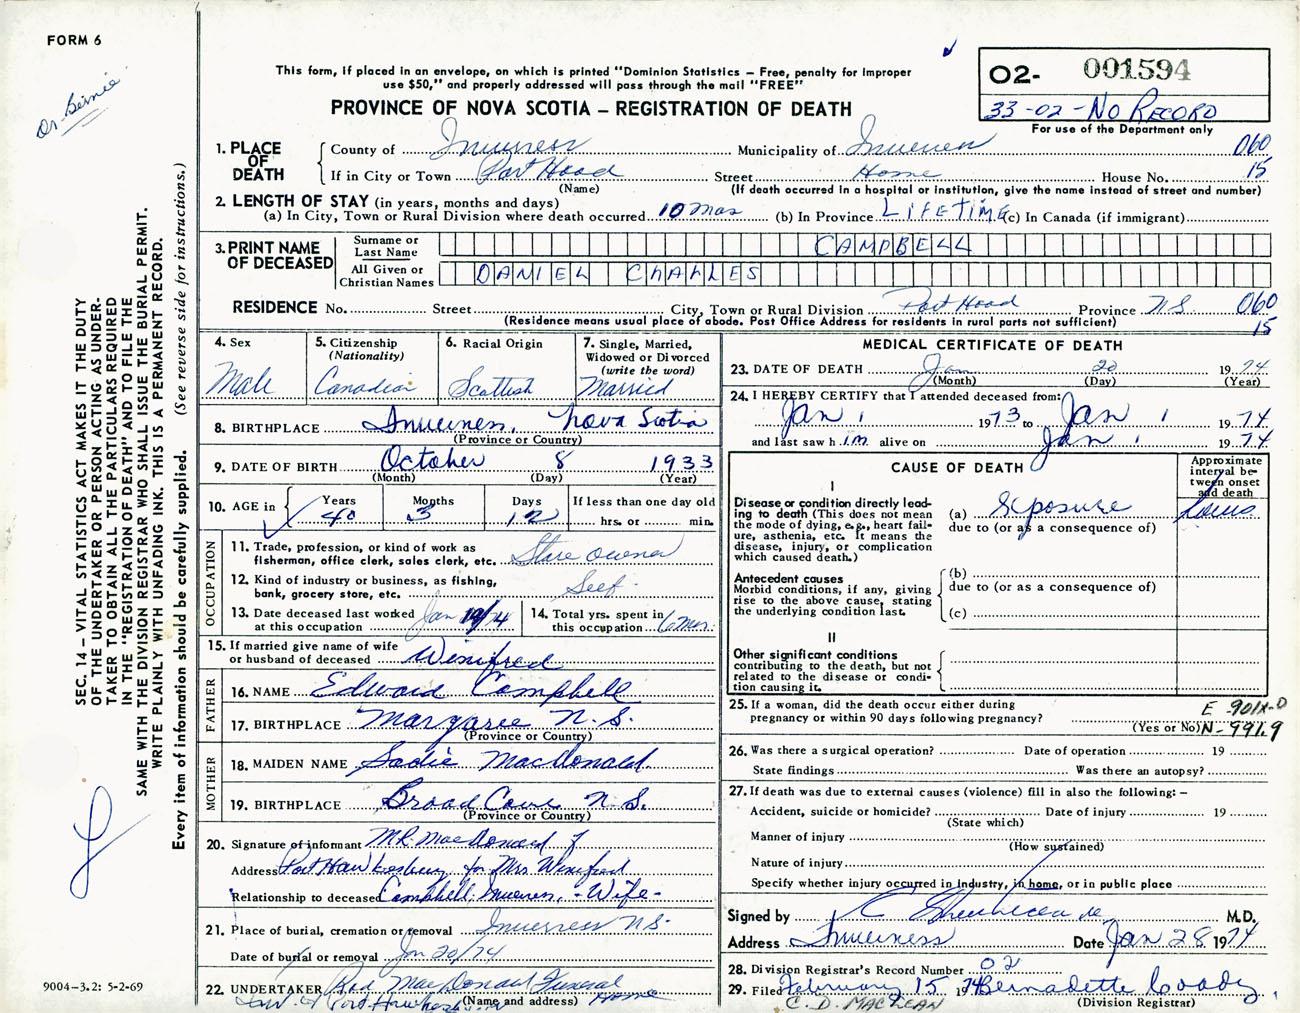 FORM 6
Dr. Bernie
This form, if placed in an envelope, on which is printed "Dominion Statistics – Free, penalty for improper
use $50," and properly addressed will pass through the mail "FREE"
O2- 001594
33-02 - NO RECORD
For use of the Department only
PROVINCE OF NOVA SCOTIA – REGISTRATION OF DEATH
1. PLACE OF DEATH
County of Inverness Municipality of Inverness 060
If in City or Town Port Hood Street Home House No. 15
(Name) (If death occurred in a hospital or institution, give the name instead of street and number)
2. LENGTH OF STAY (in years, months and days)
(a) In City, Town or Rural Division where death occurred 10 mos (b) In Province LIFETIME (c) In Canada (if immigrant)
3. PRINT NAME OF DECEASED
Surname or Last Name CAMPBELL
All Given or Christian Names DANIEL CHARLES
RESIDENCE No. Street City, Town or Rural Division Port Hood Province N.S. 060
(Residence means usual place of abode. Post Office Address for residents in rural parts not sufficient) 15
4. Sex
Male
5. Citizenship
(Nationality)
Canadian
6. Racial Origin
Scottish
7. Single, Married,
Widowed or Divorced
(write the word)
Married
8. BIRTHPLACE Inverness, Nova Scotia
(Province or Country)
9. DATE OF BIRTH October 8 1933
(Month) (Day) (Year)
10. AGE in Years Months Days If less than one day old
40 3 12 hrs. or min.
OCCUPATION
11. Trade, profession, or kind of work as
fisherman, office clerk, sales clerk, etc. Store owner
12. Kind of industry or business, as fishing,
bank, grocery store, etc. Self
13. Date deceased last worked
at this occupation Jan 19/74
14. Total yrs. spent in
this occupation 6 mos.
15. If married give name of wife
or husband of deceased Winifred
FATHER
16. NAME Edward Campbell
17. BIRTHPLACE Margaree N.S.
(Province or Country)
MOTHER
18. MAIDEN NAME Sadie MacDonald
19. BIRTHPLACE Broad Cove N.S.
(Province or Country)
20. Signature of informant M.R. MacDonald
Address Port Hawkesbury for Mrs. Winifred
Relationship to deceased Campbell, Inverness, -Wife-
21. Place of burial, cremation or removal Inverness N.S.
Date of burial or removal Jan 20/74
22. UNDERTAKER Rod MacDonald Funeral
(Name and address) Home
Port Hawkesbury
MEDICAL CERTIFICATE OF DEATH
23. DATE OF DEATH Jan 20 1974
(Month) (Day) (Year)
24. I HEREBY CERTIFY that I attended deceased from:
Jan 1 1973 to Jan 1 1974
and last saw him alive on Jan 1 1974
CAUSE OF DEATH
Approximate
interval be-
tween onset
and death
I
Disease or condition directly lead-
ing to death (This does not mean
the mode of dying, e.g., heart fail-
ure, asthenia, etc. It means the
disease, injury, or complication
which caused death.)
(a) Exposure hours
due to (or as a consequence of)
Antecedent causes
Morbid conditions, if any, giving
rise to the above cause, stating
the underlying condition last.
(b)
due to (or as a consequence of)
(c)
II
Other significant conditions
contributing to the death, but not
related to the disease or condi-
tion causing it.
25. If a woman, did the death occur either during
pregnancy or within 90 days following pregnancy?
(Yes or No)
E 901X-0
N-991.9
26. Was there a surgical operation? Date of operation 19
State findings Was there an autopsy?
27. If death was due to external causes (violence) fill in also the following: –
Accident, suicide or homicide? Date of injury 19
(State which)
Manner of injury
(How sustained)
Nature of injury
Specify whether injury occurred in industry, in home, or in public place
Signed by M.D.
Address Inverness Date Jan 28 1974
28. Division Registrar's Record Number 02
29. Filed February 15 1974 Bernadette Coady
C. D. MACLEAN (Division Registrar)
SEC. 14 – VITAL STATISTICS ACT MAKES IT THE DUTY
OF THE UNDERTAKER OR PERSON ACTING AS UNDER-
TAKER TO OBTAIN ALL THE PARTICULARS REQUIRED
IN THE "REGISTRATION OF DEATH" AND TO FILE THE
SAME WITH THE DIVISION REGISTRAR WHO SHALL ISSUE THE BURIAL PERMIT.
WRITE PLAINLY WITH UNFADING INK. THIS IS A PERMANENT RECORD.
Every item of information should be carefully supplied. (See reverse side for instructions.)
9004-3.2: 5-2-69